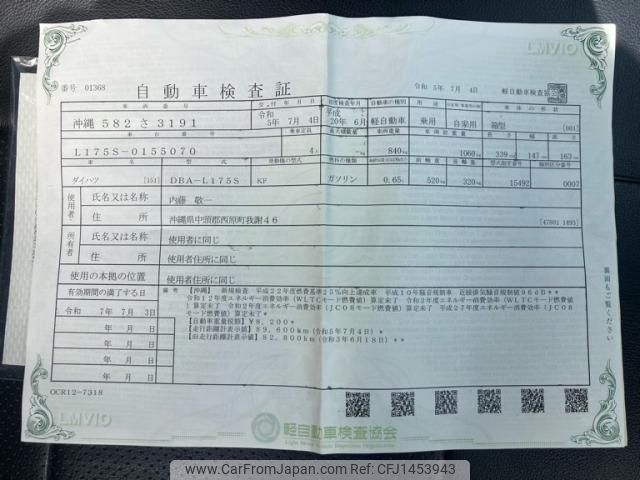 LMVIO
番号 01368
自動車検査証
令和 5年 7月 4日
軽自動車検査協会
車両番号
交付年月日
初度検査年月
自動車の種別
用途
車体の形状
沖縄 582 さ 3191
令和 5年 7月 4日
平成 20年 6月
軽自動車
乗用
自家用
箱型
[001]
車台番号
乗車定員
最大積載量
車両重量
車両総重量
長さ
幅
高さ
L175S-0155070
4人
840kg
1060kg
339cm
147cm
163cm
車名
型式
原動機の型式
燃料の種類
型式指定番号
類別区分番号
ダイハツ
[151]
DBA-L175S
KF
ガソリン
0.65
520kg
320kg
15492
0007
使用者
氏名又は名称
内藤 敬一
住所
沖縄県中頭郡西原町我謝46
[47001 1493]
所有者
氏名又は名称
使用者に同じ
住所
使用者住所に同じ
使用の本拠の位置
使用者住所に同じ
有効期間の満了する日
令和 7年 7月 3日
年 月 日
年 月 日
年 月 日
年 月 日
備考
【沖縄】 新規検査 平成22年度燃費基準25%向上達成車 平成10年騒音規制車 近接排気騒音規制値96dB*
令和12年度エネルギー消費効率(WLTCモード燃費値)算定未了 令和2年度エネルギー消費効率(WLTCモード燃費値
)算定未了 令和2年度エネルギー消費効率(JC08モード燃費値)算定未了 平成27年度エネルギー消費効率(JC08
モード燃費値)算定未了*
【自動車重量税額】¥8,200*
【走行距離計表示値】89,600km(令和5年7月4日)*
【旧走行距離計表示値】82,800km(令和3年6月18日)**
裏面もご覧ください
OCR12-7318
LMVIO
軽自動車検査協会
Light Motor Vehicle Inspection Organization
CarFromJapan.com
CarFromJapan.com
CarFromJapan.com
CJ1453943